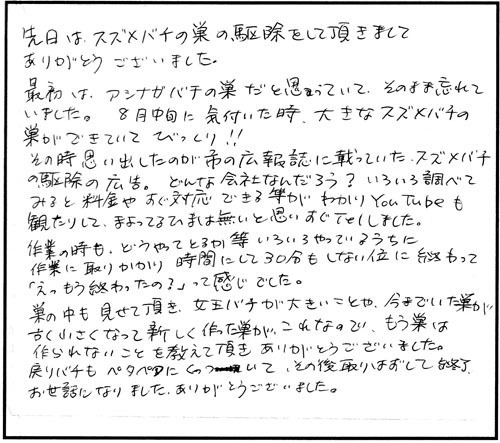 先日は、スズメバチの巣の駆除をして頂きまして
ありがとうございました。
最初は、アシナガバチの巣だと思っていて、そのまま忘れて
いました。8月中旬に気付いた時、大きなスズメバチの
巣ができていてびっくり!!
その時思い出したのが市の広報誌に載っていた、スズメバチ
の駆除の広告。どんな会社なんだろう?いろいろ調べて
みると料金やすぐ対応できる事がわかりYouTubeも
観たりして、まよってるひまは無いと思いすぐTELしました。
作業の時も、どうやってとるか等いろいろやっているうちに
作業に取りかかり時間にして30分もしない位に終わって
「えっもう終わったの?」って感じでした。
巣の中も見せて頂き、女王バチが大きいことや、今までいた巣が
古く小さくなって新しく作った巣が、これなので、もう巣は
作られないことを教えて頂きありがとうございました。
戻りバチもペタペタにくっついて、その後取りはずして終了
お世話になりました、ありがとうございました。